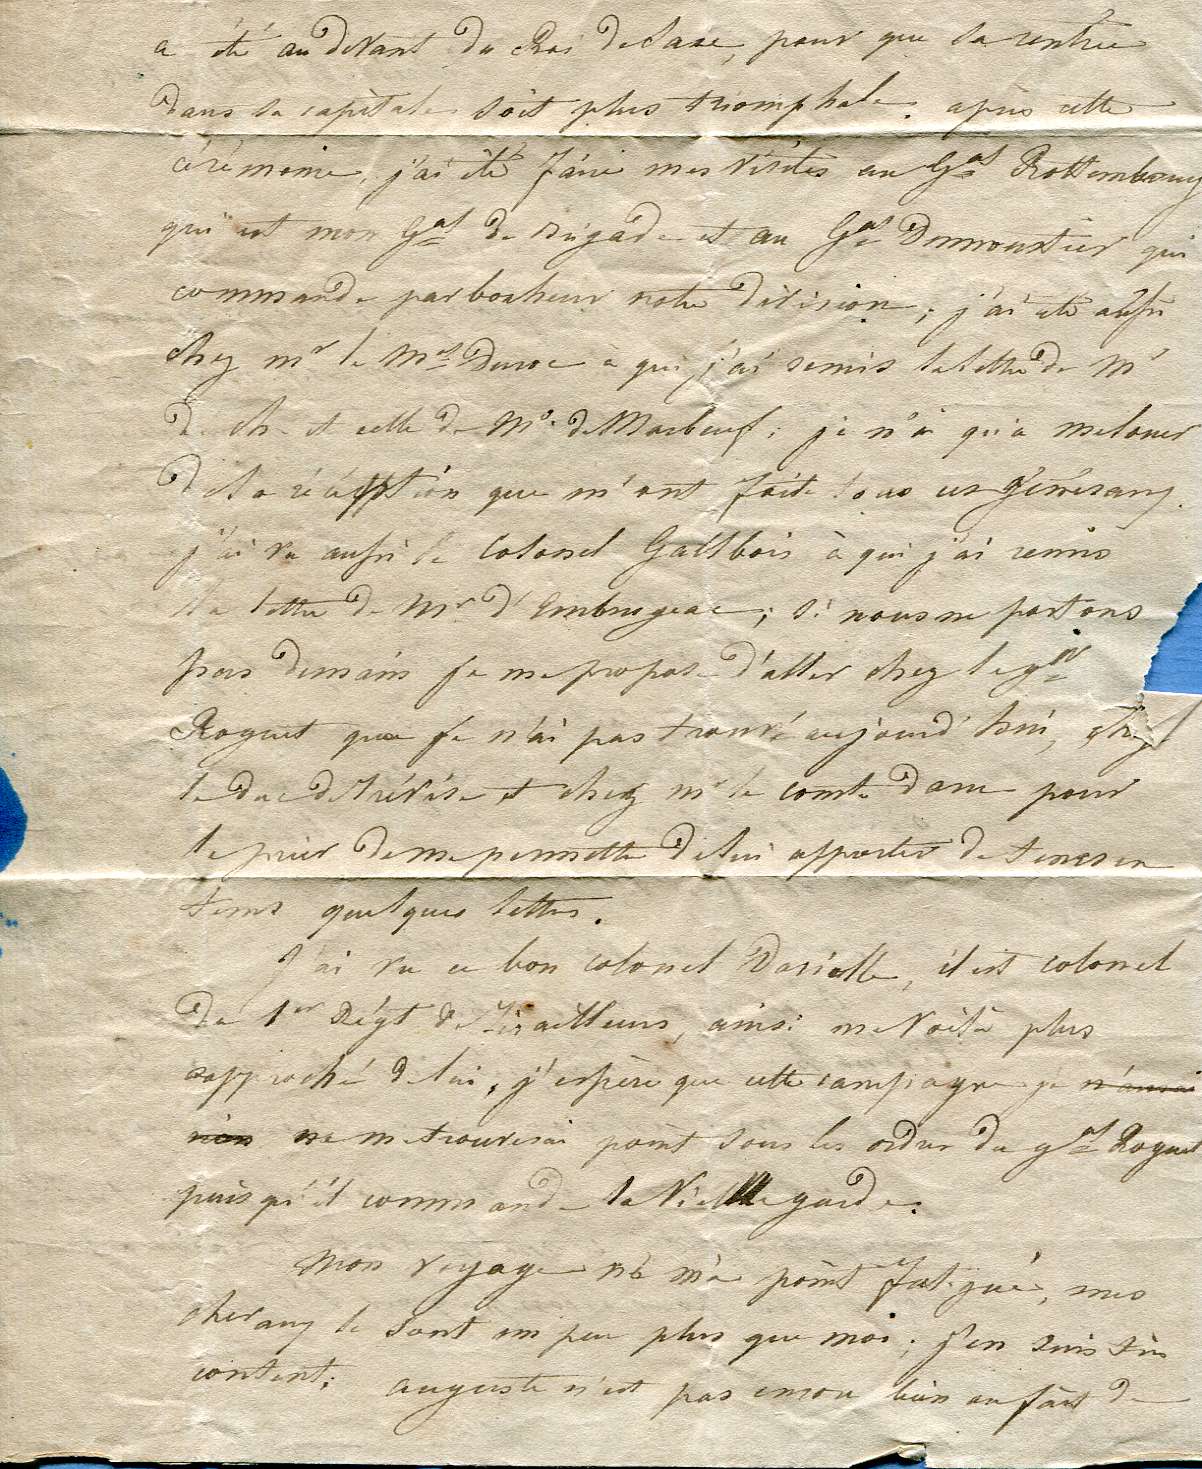 a été au devant du Roi de Saxe, pour que sa rentrée
dans sa capitale soit plus triomphale. après cette
cérémonie, j'ai été faire mes visites au Gal Rottembourg
qui est mon Gal de Brigade et au Gal Dumoustier qui
commande par bonheur notre division; j'ai été aussi
chez mr le Mal Duroc à qui j'ai remis la lettre de Mr
de Ch. et celle de Me. de Marbeuf; je n'ai qu'a me louer
de la réception que m'ont faite tous ces généraux.
j'ai vu aussi le Colonel Galtbois à qui j'ai remis
la lettre de Mr d'Embrugeac; si nous ne partons
pas demain je me propose d'aller chez le gal
Roguet que je n'ai pas trouvé aujourd'hui, chez
le duc de trévise et chez mr le comte daru pour
le prier de me permettre de lui apporter de tems en
tems quelques lettres.
J'ai vu ce bon colonel Darialle, il est colonel
du 1er Régt de Tirailleurs, ainsi me voilà plus
rapproché de lui, j'espère que cette campagne je n'aurai
rien ne me trouverai point sous les ordres du gal Roguet
puisqu'il commande la Vieille garde.
Mon voyage ne m'a point fatigué, mes
chevaux le sont un peu plus que moi; j'en suis très
content; auguste n'est pas encore bien au fait de